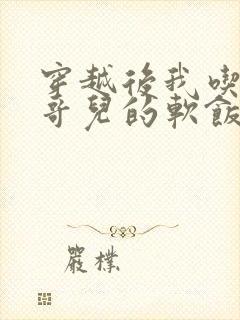 穿越後我喫
哥兒的軟飯
嚴樸